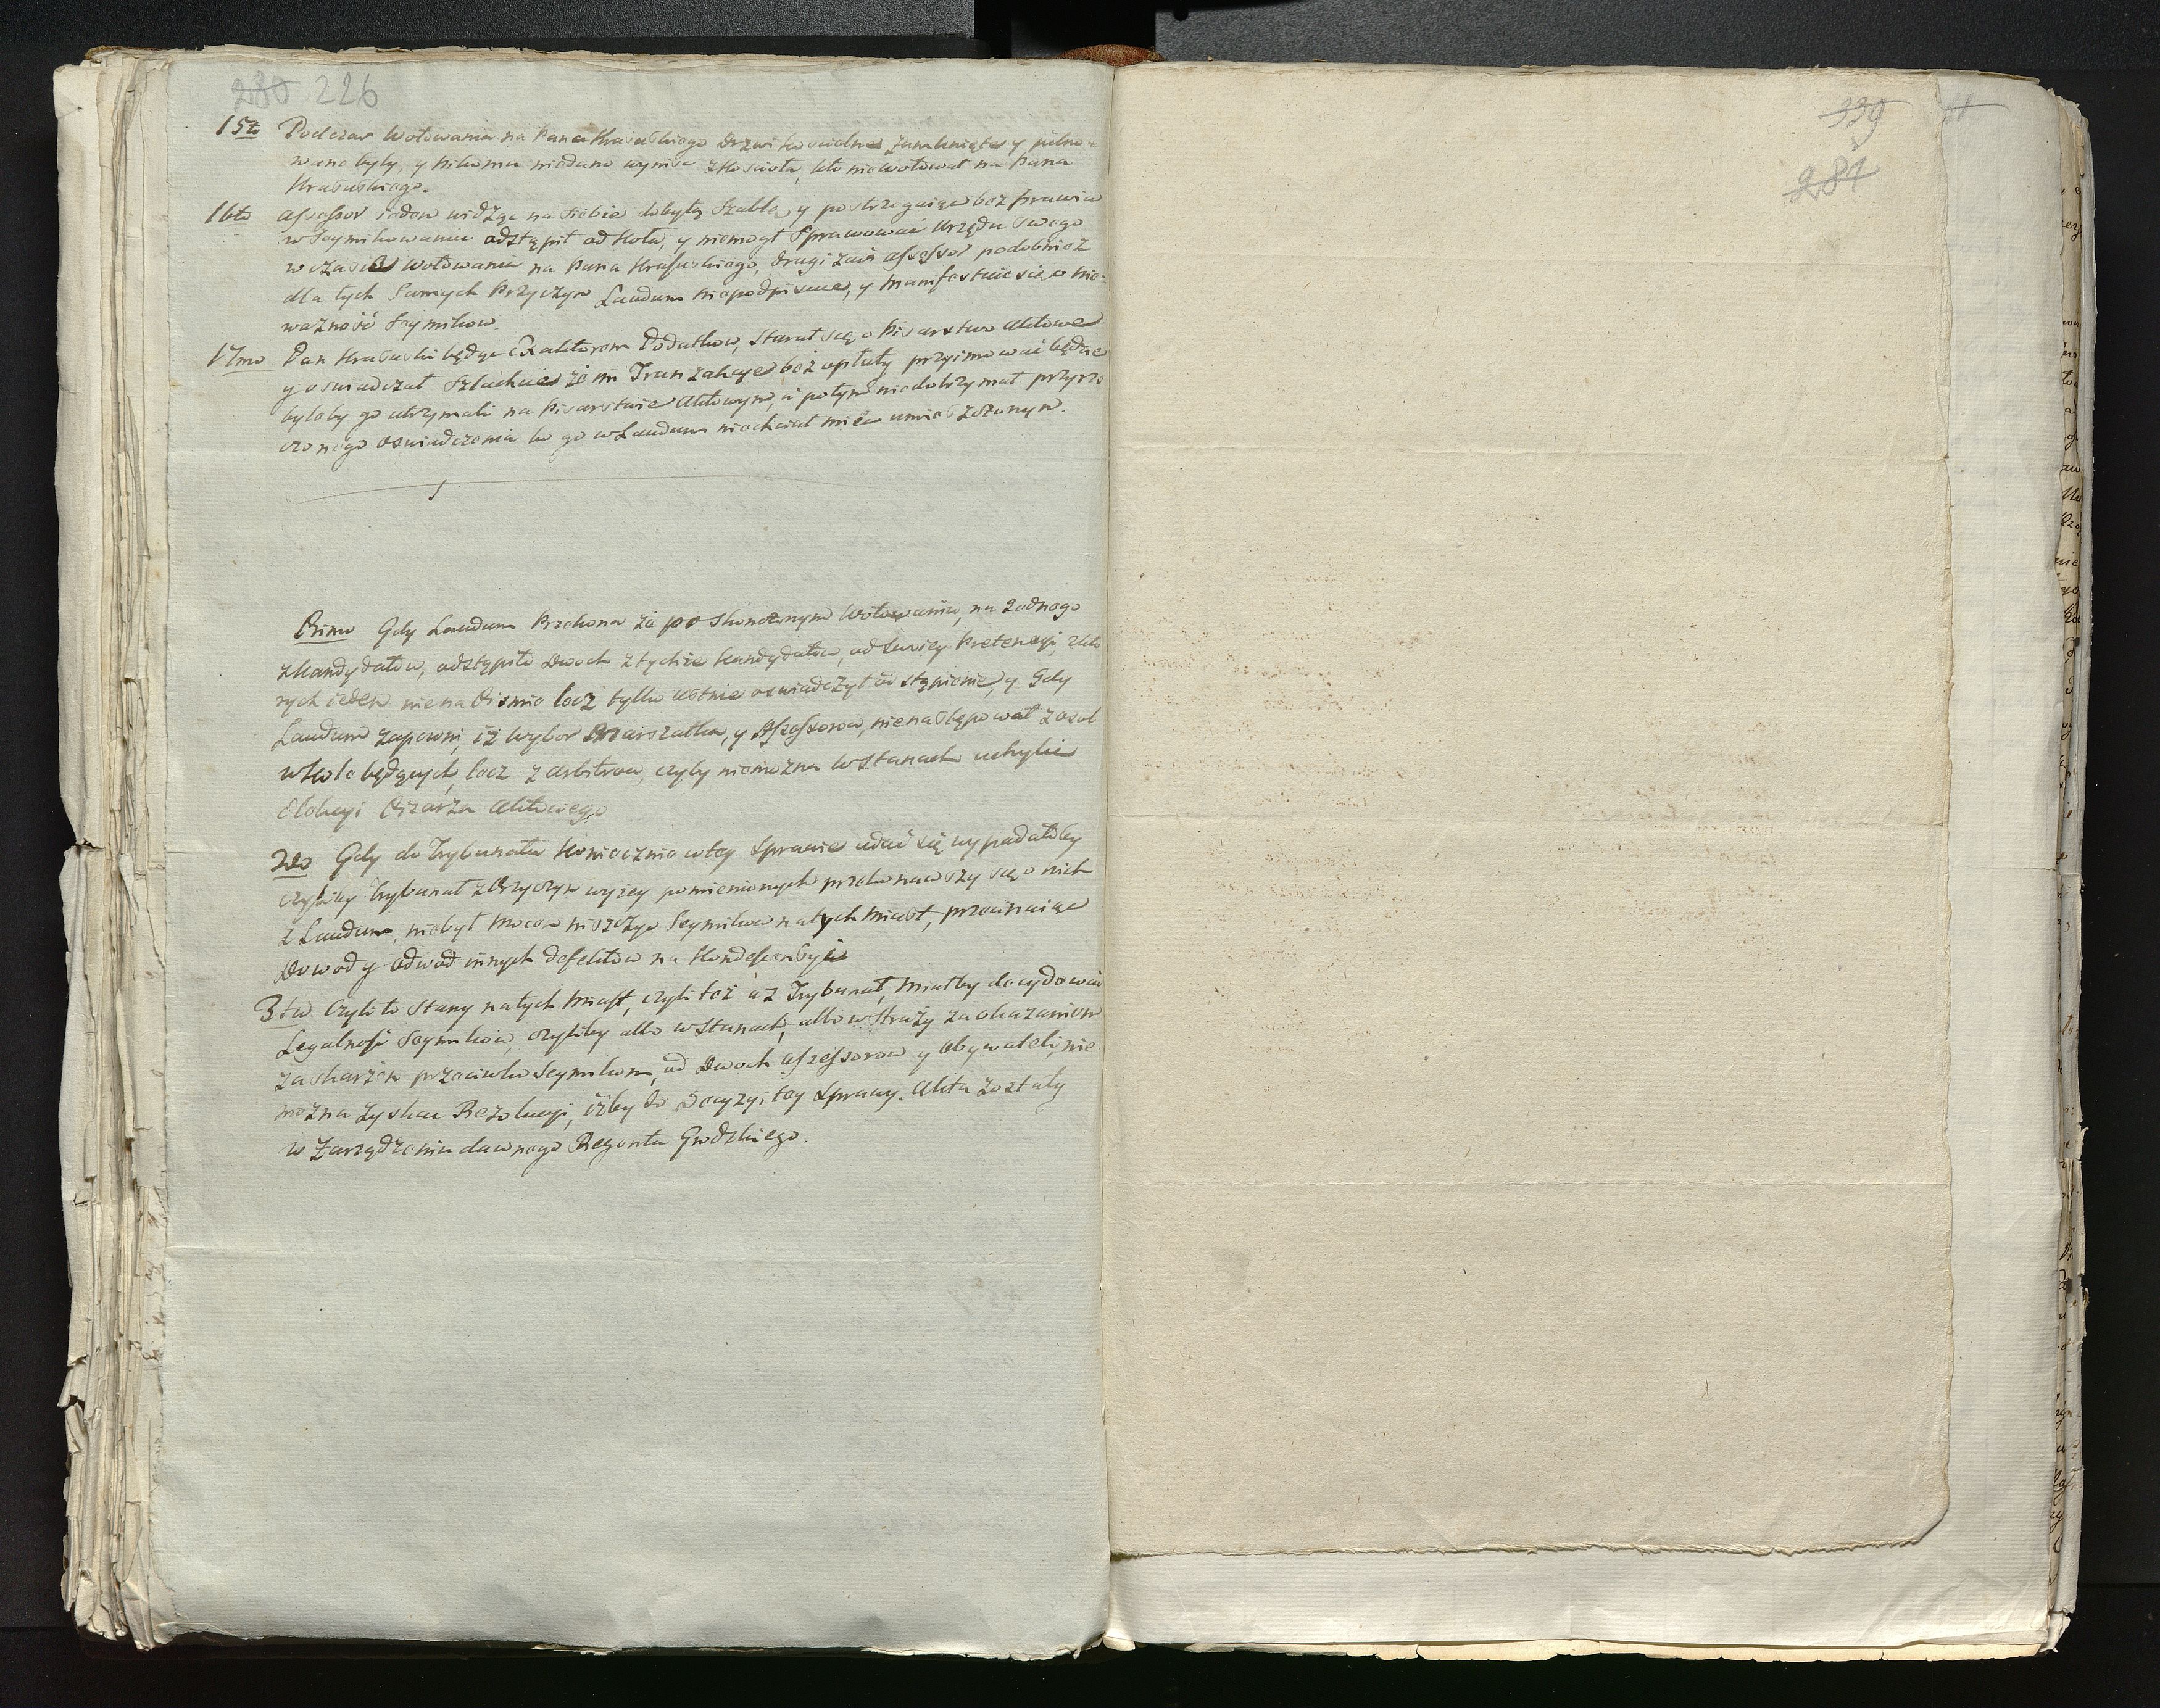 280 226
15to Podczas Wotowania na Pana Krasuskiego Drzwi Koscielne zamknięte y pilno=
wane były, y nikomu niedano wyniść z Koscioła, kto niewotował na Pana
Krasuskiego.
16to Assessor ieden widząc na siebie dobytą Szablę, y postrzegaiąc bez prawia
w Seymikowaniu odstąpił od Koła, y niemogł Sprawować Urzędu Swego
w czasie Wotowania na Pana Krasuskiego, drugi zaś assessor podobnież
dla tych Samych Przyczyn Laudum niepodpisuie, y manifestuie się o nie=
ważność Seymikow.
17mo Pan Krasuski będąc Exaktorem Podatkow, Starał się o Pisarstwo Aktowe
y oswiadczał Szlachcie że mi Tranzakcye bez opłaty przyimować będzie
byleby go utrzymali na Pisarstwie Aktowym, a potym niedotrzymał przyrze
czonego oswiadczenia bo go w Laudum niechciał mieć umieszczonym.
Primo Gdy Laudum Przekona że po skonczonym Wotowaniu, na żadnego
z Kandydatów, odstąpiło Dwoch z tychże Kandydatów, od swoiey Pretensyi, z któ
rych ieden nie na Pismie lecz tylko ustnie oswiadczył odstąpienie, y Gdy
Laudum zapewni, iż wybor Marszałka, y Assessorow, nienastępował z osob
w Kole będących, lecz z Arbitrow, czyby niemożna w Stanach uchylić
Elekcyi Pisarza Aktowego
2do Gdy do Trybunału Koniecznie w tey sprawie udać się wypadałoby
czyliby Trybunał z Przyczyn wyżey pomienionych przekonawszy się o nich
z Laudum, niebył mocen niszczyć Seymikow natychmiast, przecinaiąc
Dowod y odwod innych defektow na Kondescensyi
3tio Czyli to Stany natychmiast, czyli też iuż Trybunał, miałby decydować
Legalność Seymikow, czyliby albo w Stanach, albo w Straży za okazaniem
zaskarżeń przeciwko Seymikom, od Dwoch assessorow y Obywateli, nie
można zyskać Rezolucyi, iżby do Decyzyi tey sprawy. Akta zostały
w Zarządzeniu dawnego Regenta Grodzkiego.
339
281